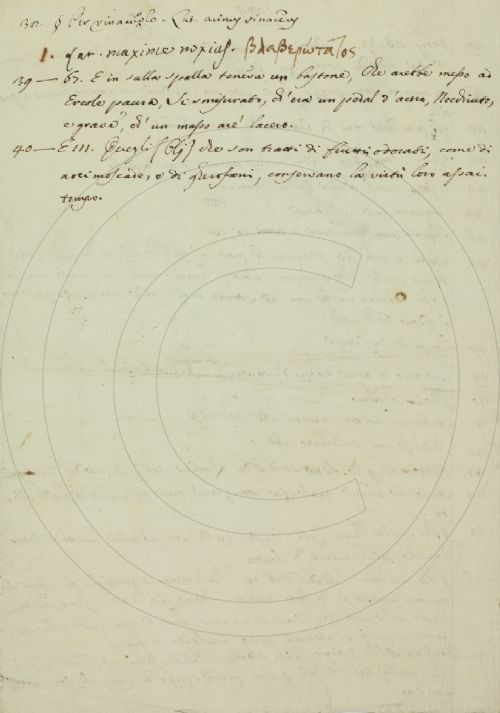 301. § Per vinacciolo. Lat. acinus vinaceus
1. Lat. maxime noxius. βλαβερώτατος
39 — 63. E in sulla spalla teneva un bastone, Che arebbe messo ad
Ercole paura, Sì smisurato, ch'era un pedal d'acero, Nocchiuto,
e grave, ch'un masso are' lacero.
40 — E 111. Quegli [Olj] che son tratti di frutti odorati, come di
noci moscade, e di gherofani, conservano la virtù loro assai
tempo.